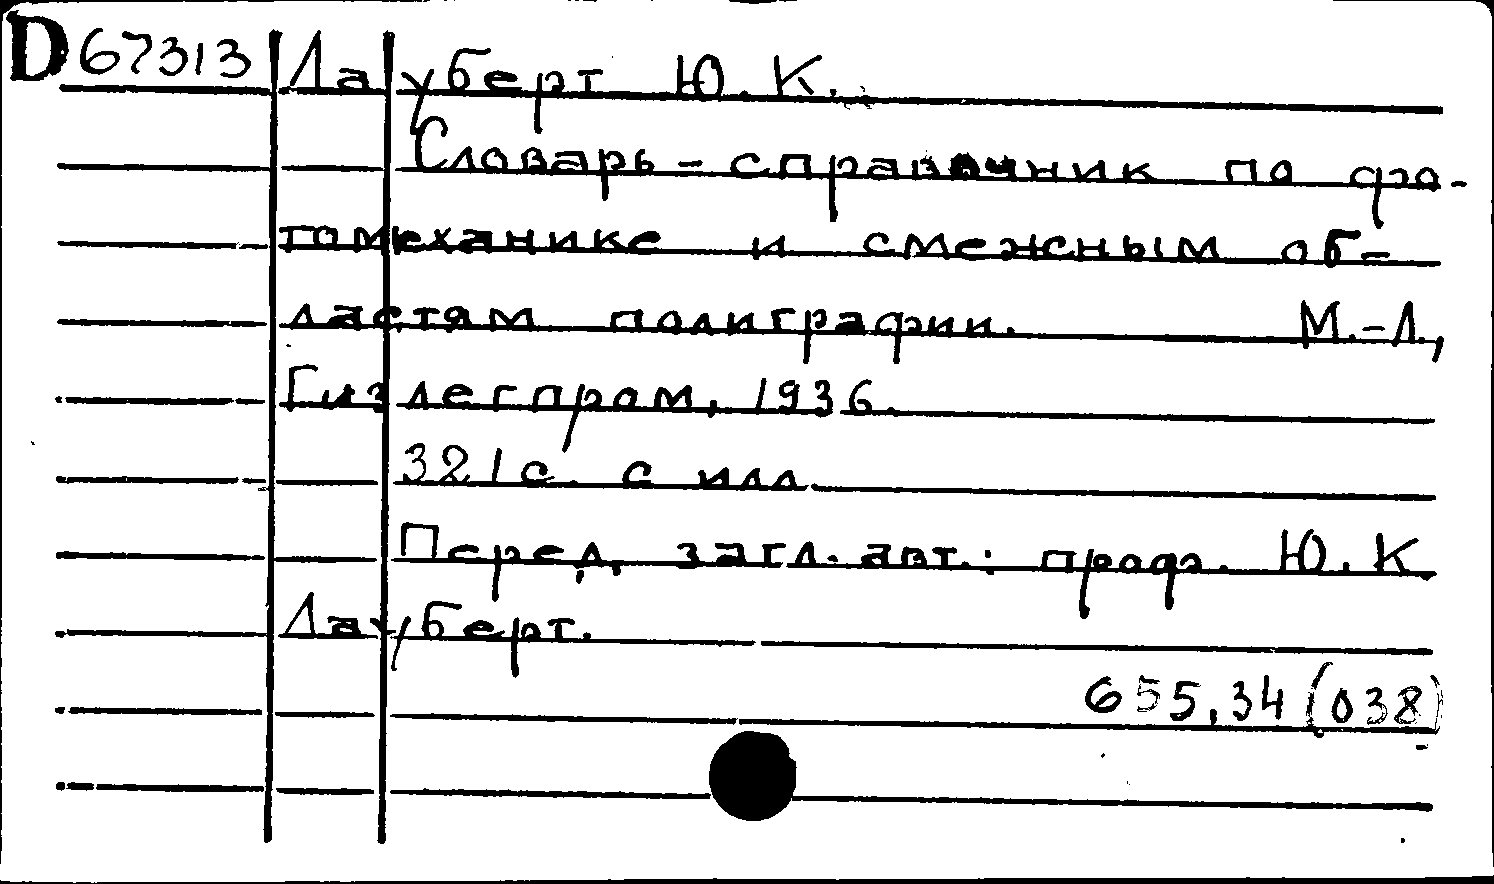 D 67313 Лауберт Ю. К.
Словарь-справочник по фо-
томеханике и смежным об-
ластям полиграфии. М.-Л.,
Гизлегпром, 1936.
321 с. с илл.
Перед. загл. авт.: проф. Ю. К.
Лауберт.
655.34(038)